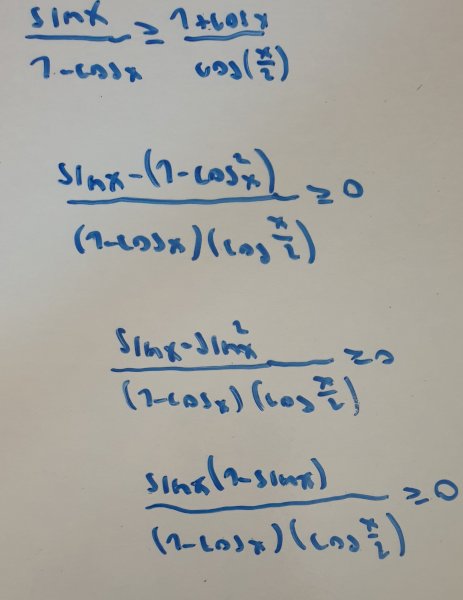 sinx/(1-cosx) ≥ (1+cosx)/(cos(x/2))
(sinx-(1-cos²x))/((1-cosx)(cos x/2)) ≥ 0
(sinx-sin²x)/((1-cosx)(cos x/2)) ≥ 0
(sinx(1-sinx))/((1-cosx)(cos x/2)) ≥ 0